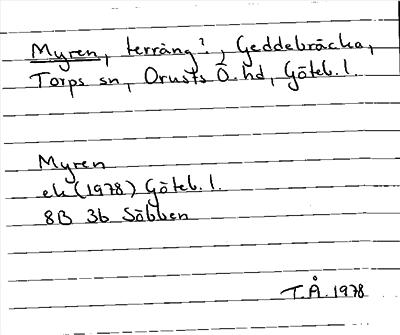 Myren, terräng?, Geddebräcka,
Torps sn, Orusts Ö. hd, Göteb. l.
Myren
ek (1978) Göteb. l.
8B 3b Säbben
T.Å. 1978